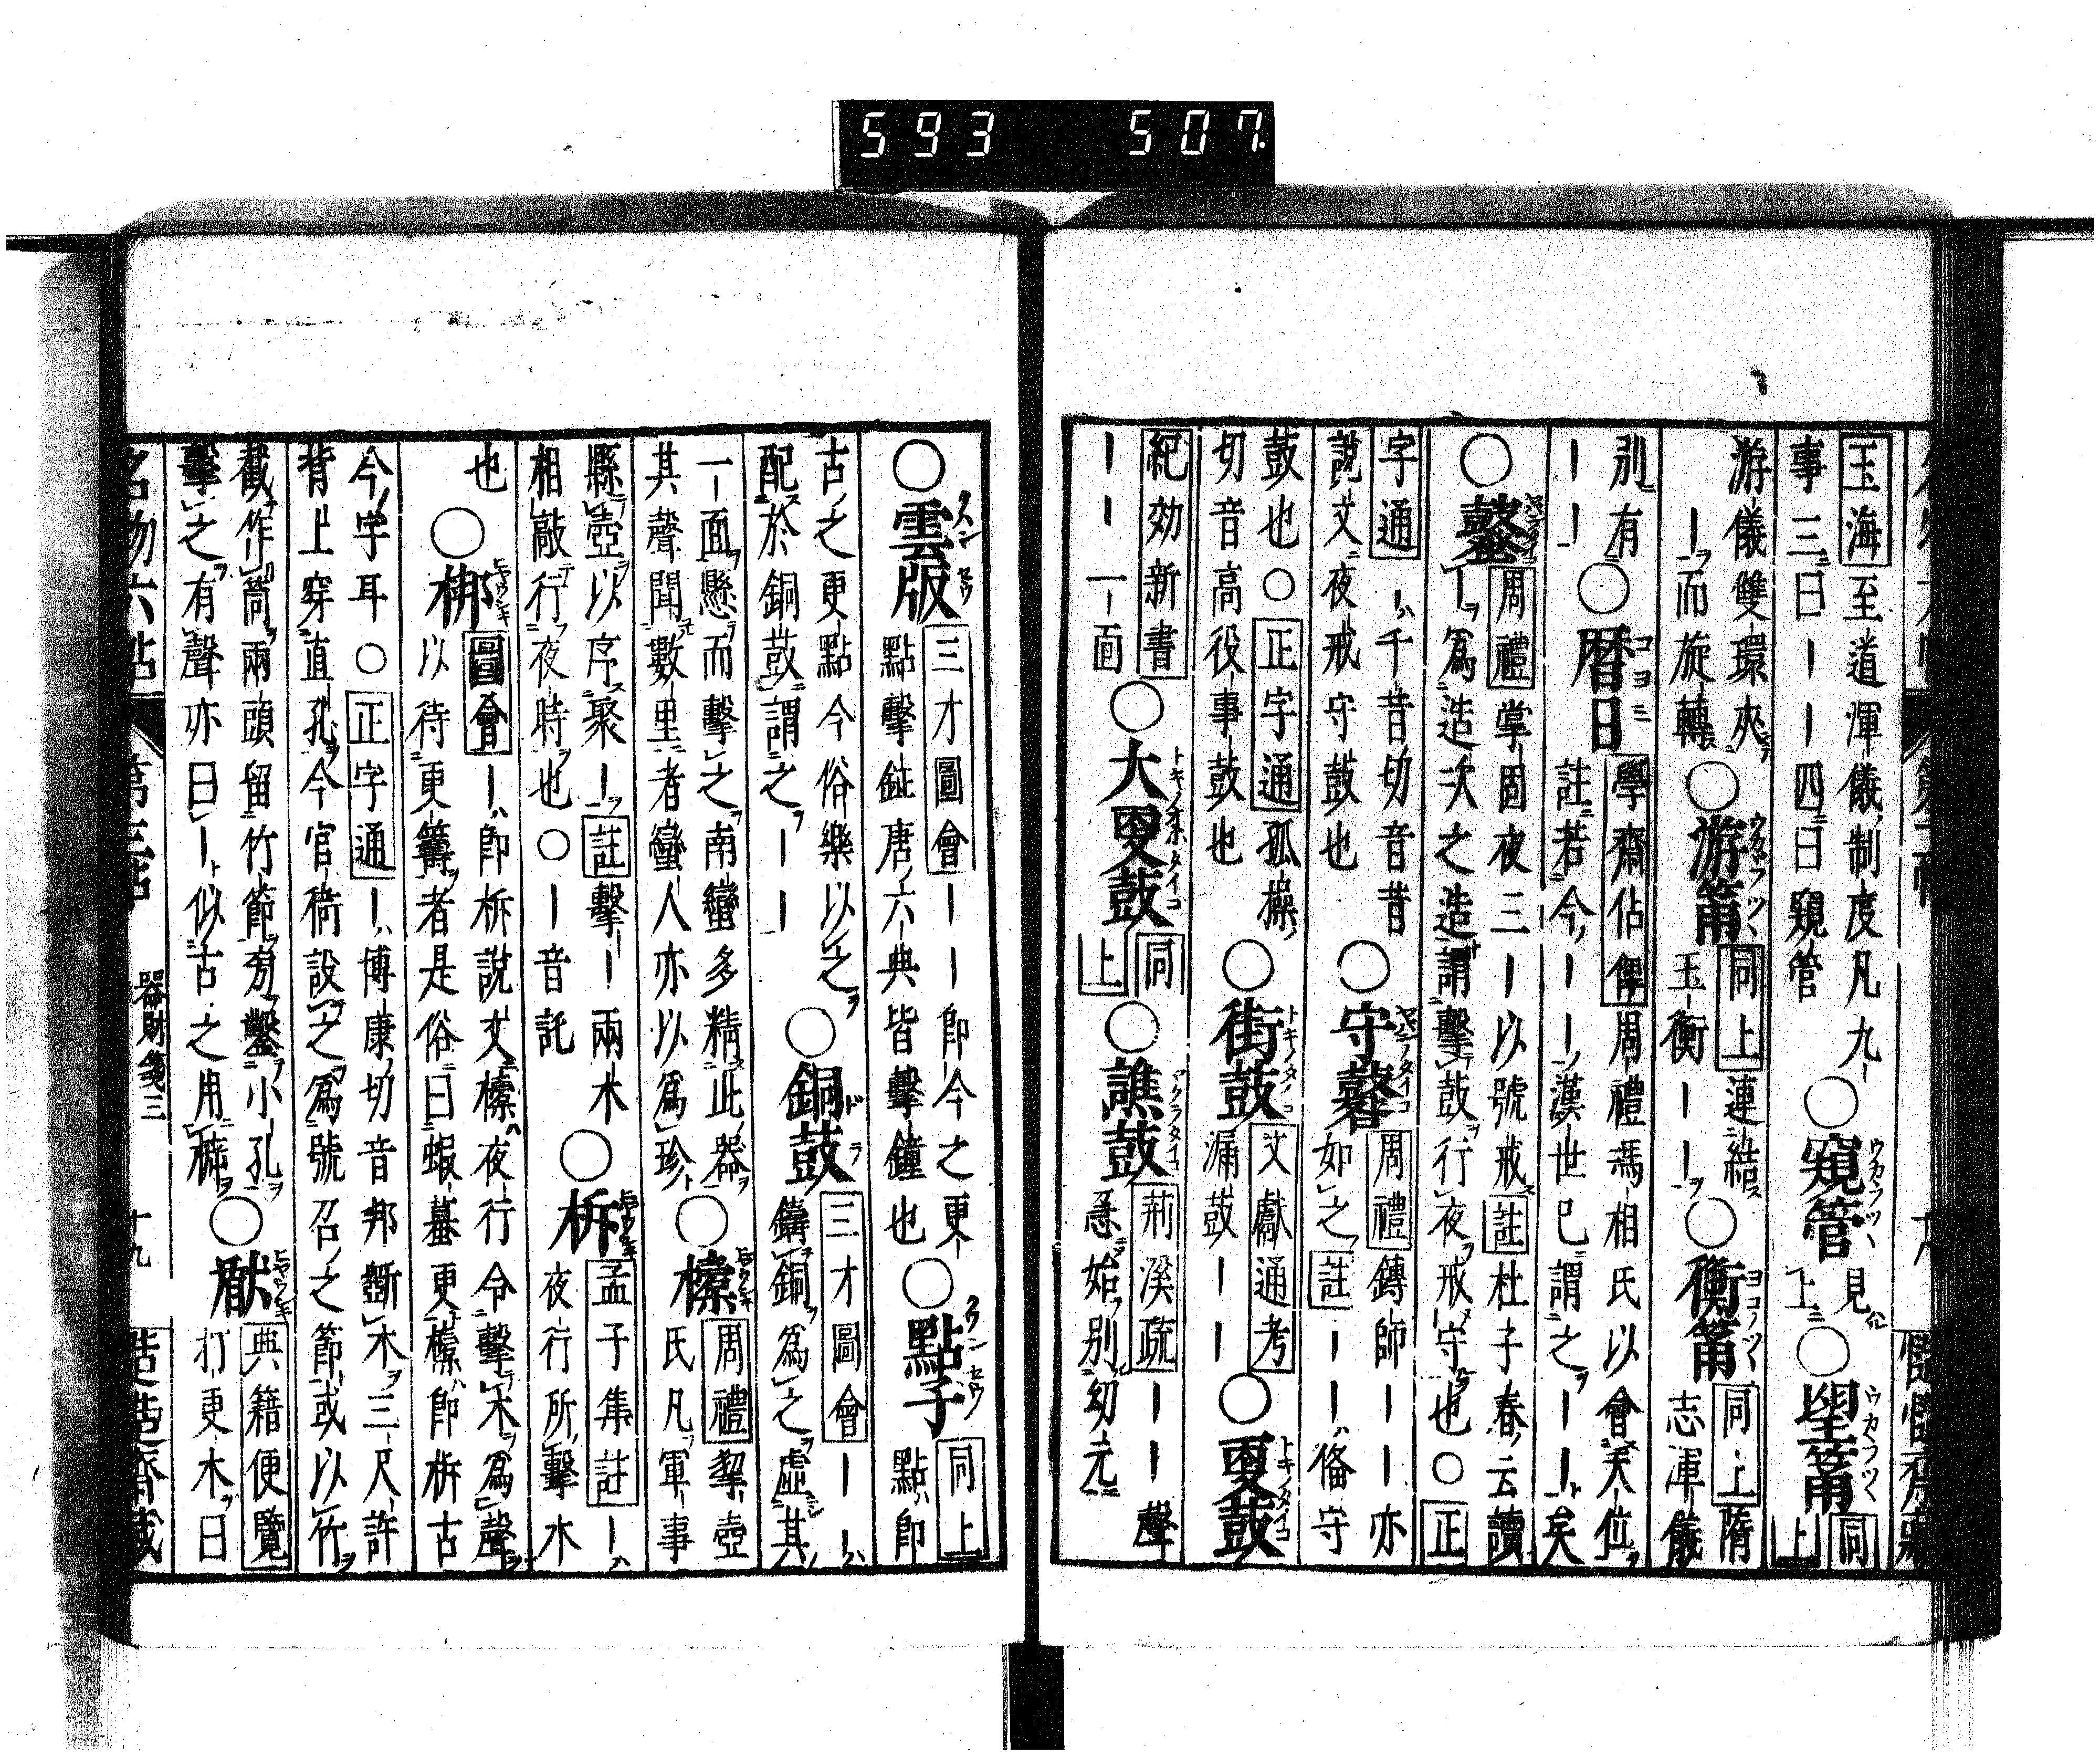 593 507.
玉海至道渾儀制度凡九事三曰｜｜｜四曰窺管○窺管見上○望筩同上
游儀雙環夾｜而旋轉○游筩同上連結玉衡｜｜○衡筩同上隋志渾儀
別有｜｜｜○暦日學齋佔僤周禮馮相氏以會天位註若今｜｜漢世已謂之｜｜矣
○鼜周禮掌固夜三｜以號戒註杜子春云讀｜爲造次之造謂擊鼓行夜戒守也○正
字通｜千昔切音昔說文夜戒守鼓也○守鼜周禮鎛師｜｜亦如之註｜｜俻守
鼓也○正字通孤操切音高役事鼓也○街鼓文獻通考漏鼓｜｜○更鼓
紀効新書｜｜一面○大更鼓同上○譙鼓荊溪疏｜｜聲急始別幼元
○雲版三才圖會｜｜即今之更點擊鉦唐六典皆擊鐘也○點子同上點即
古之更點今俗樂以之配於銅鼓謂之｜｜○銅鼓三才圖會｜｜鑄銅爲之虛其
一面懸而擊之南蠻多精此器其聲聞數里者蠻人亦以爲珍○㯓周禮挈壺氏凡軍事
縣壺以序聚｜註擊｜兩木相敲行夜時也○｜音託○柝孟子集註｜夜行所擊木
也○梆圖會｜即柝說文㯓夜行令擊木爲聲以待更籌者是俗曰蝦蟇更㯓即柝古
今字耳○正字通｜博康切音邦斲木三尺許背上穿直孔今官衙設之爲號召之節或以竹
截作筒兩頭留竹節旁鑿小孔擊之有聲亦曰｜似古之用㯓○㭺典籍便覽打更木曰
名物六帖 第三帖 器財箋三 十九